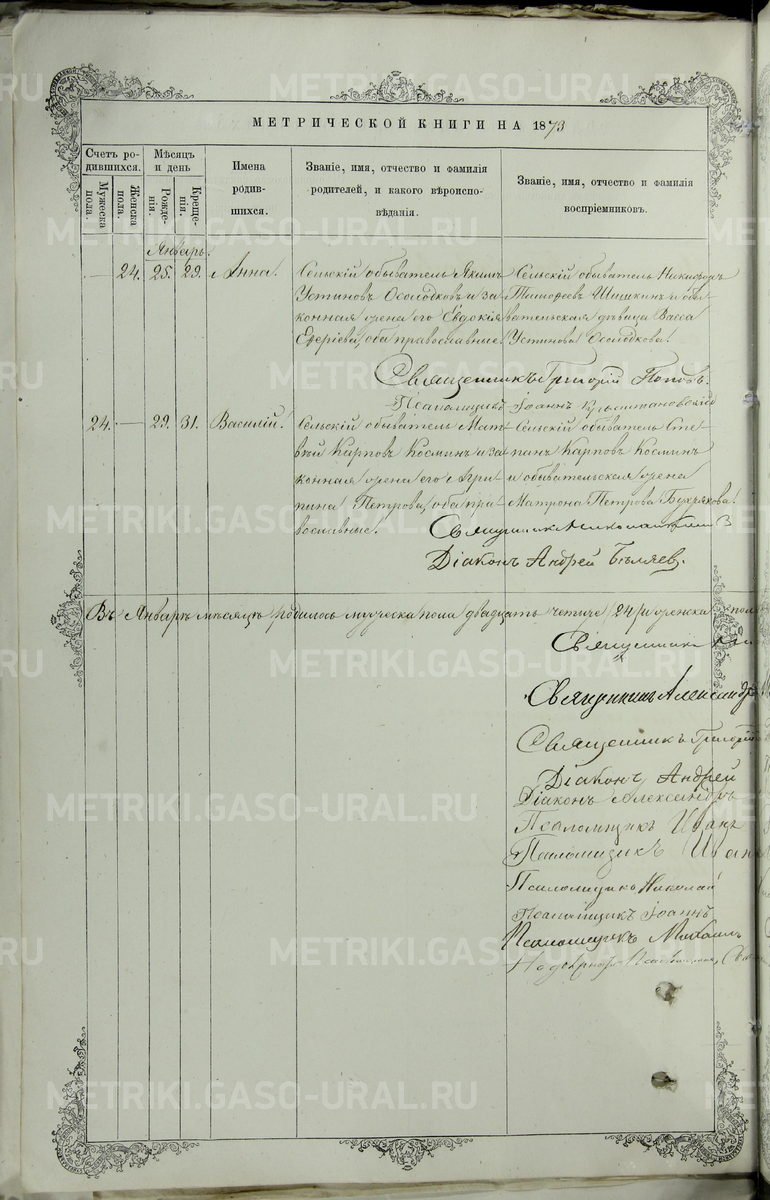 МЕТРИЧЕСКОЙ КНИГИ НА 1873
Счетъ родившихся.
Мужеска пола.
Женска пола.
Мѣсяцъ и день
Рожденія.
Крещенія.
Имена родившихся.
Званіе, имя, отчество и фамилія родителей, и какого вѣроисповѣданія.
Званіе, имя, отчество и фамилія воспріемниковъ.
Январь.
24. 25. 29. Анна.
Сельскій обыватель Якимъ
Устиновъ Осолодковъ и за-
конная жена его Евдокія
оба православные.
Сельскій обыватель Никифоръ
Тимофеевъ Шишкинъ и обы-
вательская дѣвица Васса
Устинова Осолодкова.
Священникъ Григорій Поповъ.
Псаломщикъ Іоаннъ
24. 29. 31. Василій.
Сельскій обыватель Мат-
вѣй Карповъ Косминъ и за-
конная жена его Агри-
пина Петрова, оба пра-
вославные.
Сельскій обыватель Сте-
панъ Карповъ Косминъ
и обывательская жена
Матрона Петрова
Священникъ Николай
Діаконъ Андрей Бѣляев.
Въ Январѣ мѣсяцѣ родилось мужеска пола двадцать четыре /24/ и женска пола
Священникъ
Священникъ Александръ
Священникъ Григорій
Діаконъ Андрей
Діаконъ Александръ
Псаломщикъ Иванъ
Псаломщикъ Иванъ
Псаломщикъ Николай
Псаломщикъ Іоаннъ
Псаломщикъ Михаилъ
METRIKI.GASO-URAL.RU